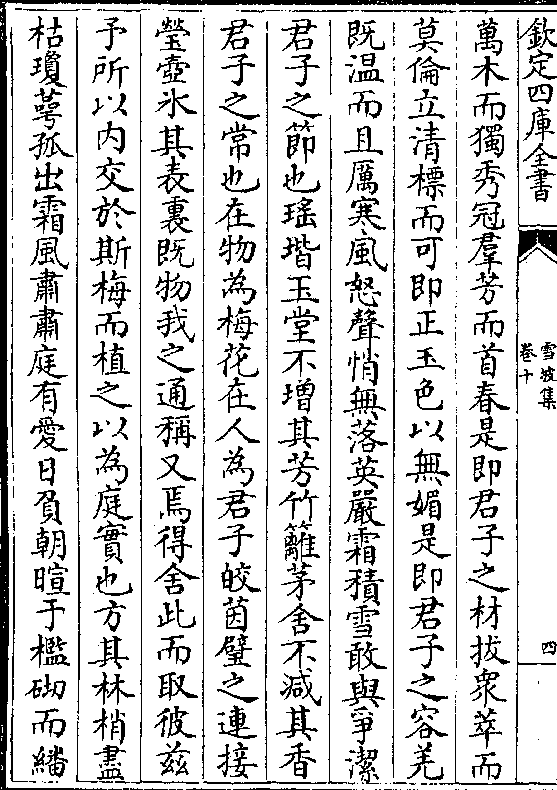 欽定四庫全書
雪坡集
卷十
四
萬木而獨秀冠羣芳而首春是即君子之材拔衆萃而
莫倫立清標而可即正玉色以無媚是即君子之容羌
既温而且厲寒風怒聲悄無落英嚴霜積雪敢與爭潔
君子之節也瑤堦玉堂不増其芳竹籬茅舍不减其香
君子之常也在物為梅花在人為君子皎茵璧之連接
瑩壺氷其表裏既物我之通稱又焉得舍此而取彼兹
予所以内交於斯梅而植之以為庭實也方其林梢盡
枯瓊萼孤出霜風肅肅庭有愛日負朝暄于檻砌而繙